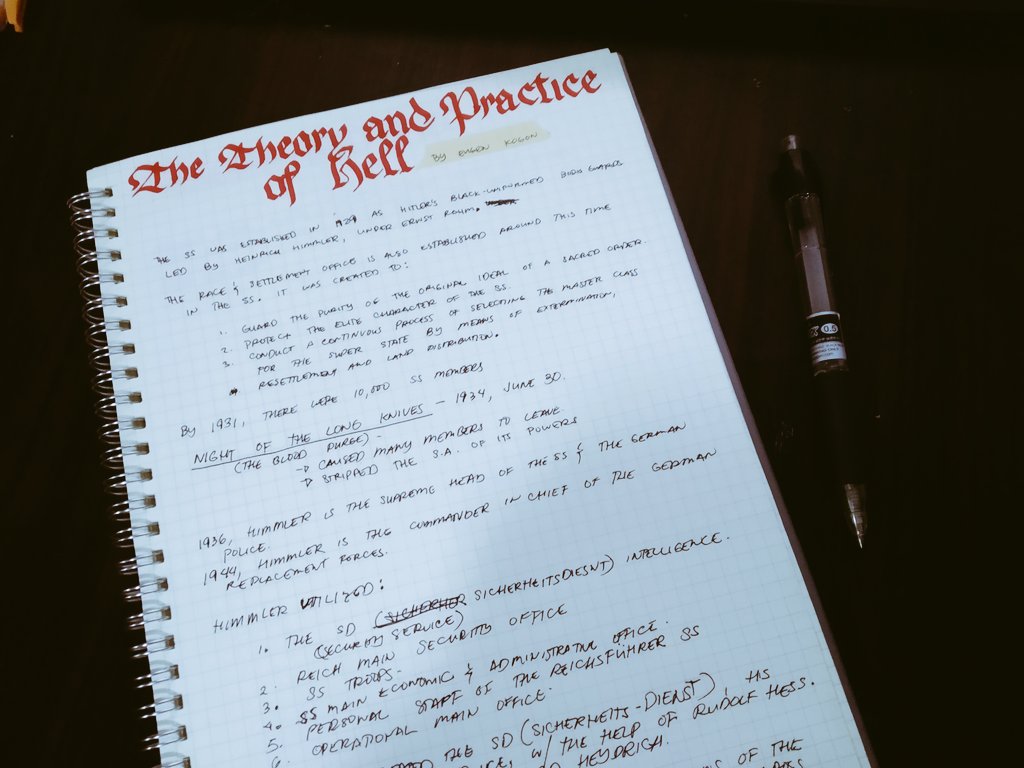 The Theory and Practice
of Hell
BY EUGEN KOGON
THE SS WAS ESTABLISHED IN 1929 AS HITLER'S BLACK-UNIFORMED BODY GUARDS
LED BY HEINRICH HIMMLER, UNDER ERNST ROHM.
THE RACE & SETTLEMENT OFFICE IS ALSO ESTABLISHED AROUND THIS TIME
IN THE SS. IT WAS CREATED TO:
1. GUARD THE PURITY OF THE ORIGINAL IDEAL OF A SACRED ORDER.
2. PROTECT THE ELITE CHARACTER OF THE SS.
3. CONDUCT A CONTINUOUS PROCESS OF SELECTING THE MASTER CLASS
FOR THE SUPER STATE BY MEANS OF EXTERMINATION,
RESETTLEMENT AND LAND DISTRIBUTION.
BY 1931, THERE WERE 10,000 SS MEMBERS
NIGHT OF THE LONG KNIVES - 1934, JUNE 30.
(THE BLOOD PURGE) -
→ CAUSED MANY MEMBERS TO LEAVE.
→ STRIPPED THE S.A. OF ITS POWERS
1936, HIMMLER IS THE SUPREME HEAD OF THE SS & THE GERMAN
POLICE.
1944, HIMMLER IS THE COMMANDER IN CHIEF OF THE GERMAN
REPLACEMENT FORCES.
HIMMLER UTILIZED:
1. THE SD (SICHERHEITSDIESNT) INTELLIGENCE.
(SECURITY SERVICE)
2. REICH MAIN SECURITY OFFICE
3. SS TROOPS-
4. SS MAIN ECONOMIC & ADMINISTRATIVE OFFICE.
5. PERSONAL STAFF OF THE REICHSFÜHRER SS
6. OPERATIONAL MAIN OFFICE.
THE SD (SICHERHEITS-DIENST), HIS
W/ THE HELP OF RUDOLF HESS.
HEYDRICH.
OF THE
0.5